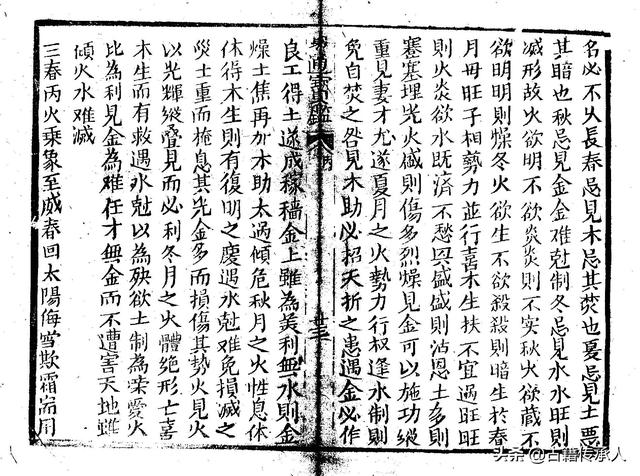 名必不久長春忌見木忌其焚也夏忌見土惡
其暗也秋忌見金金難尅制冬忌見水水旺則
滅形故火欲明不欲炎炎則不实秋火欲藏不
欲明明則燥冬火欲生不欲殺殺則暗生於春
月母旺子相勢力並行喜木生扶不宜過旺旺
則火炎欲水既济不愁與盛盛則沾恩土多則
蹇塞埋光火盛則傷多烈燥見金可以施功縱
重見妻才尤遂夏月之火勢力行权逢水制則
免自焚之咎見木助必招夭折之患遇金必作
通寶鑑
丙
良工得土遂成稼穡金土雖為美利無水則金
燥土焦再加木助太過傾危秋月之火性息体
休得木生則有復明之慶遇水尅难免損滅之
災土重而掩息其光金多而損傷其勢火見火
以光輝縱疊見而必利冬月之火體絶形亡喜
木生而有救遇水尅以為殃欲土制為荣愛火
比為利見金為难任才無金而不遭害天地雖
傾火水难滅
三春丙火乘象至威春回太陽侮雪欺霜耑用
头条 @古籍传承人